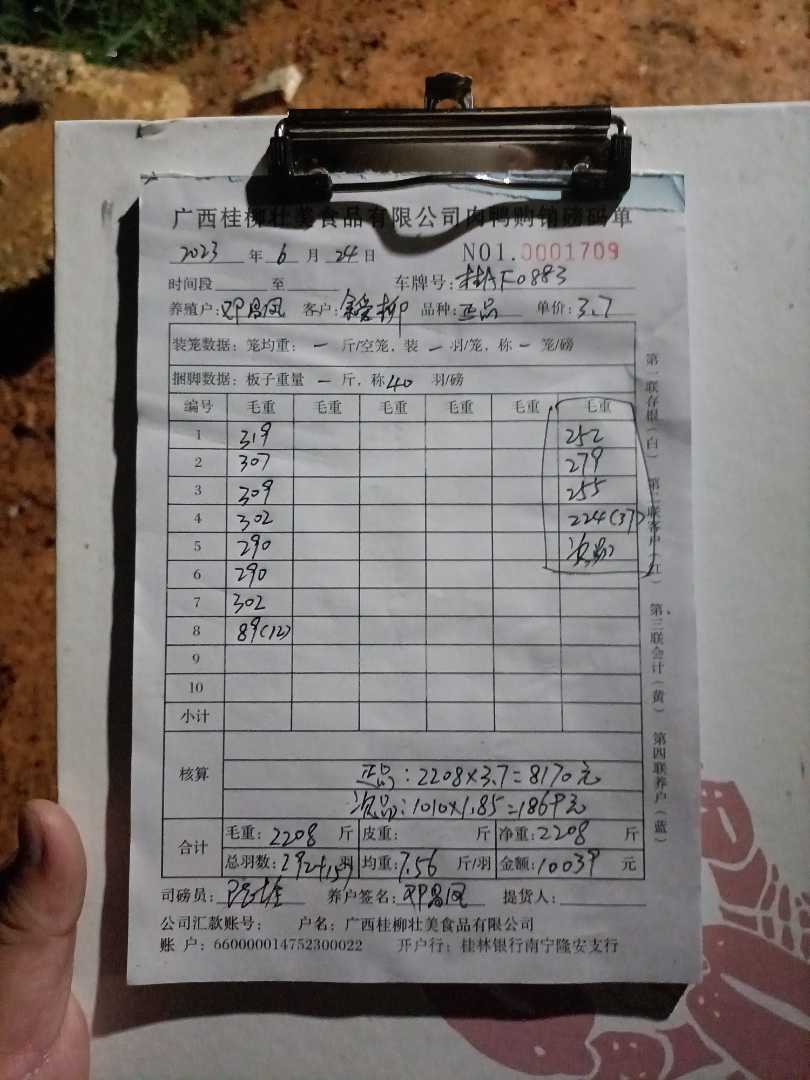 广西桂柳壮美食品有限公司肉鸭购销磅码单
2023 年 6 月 24 日 NO1.0001709
时间段 至 车牌号: 桂AF0883
养殖户: 邓昌凤 客户: 柳 品种: 正品 单价: 3.7
装笼数据: 笼均重: 一 斤/空笼, 装 一 羽/笼, 称 一 笼/磅
捆脚数据: 板子重量 一 斤, 称 40 羽/磅
编号 毛重 毛重 毛重 毛重 毛重 毛重
1 319 252
2 307 279
3 309 255
4 302 224(37)
5 290 次品
6 290
7 302
8 89(12)
9
10
小计
核算
正品: 2208×3.7=8170元
次品: 1010×1.85=1869元
合计
毛重: 2208 斤 皮重: 斤 净重: 2208 斤
总羽数: 292+159 羽 均重: 7.56 斤/羽 金额: 10039 元
司磅员: 养户签名: 邓昌凤 提货人:
公司汇款账号: 户名: 广西桂柳壮美食品有限公司
账 户: 660000014752300022 开户行: 桂林银行南宁隆安支行
第一联存根(白) 第二联客户(红) 第三联会计(黄) 第四联养户(蓝)